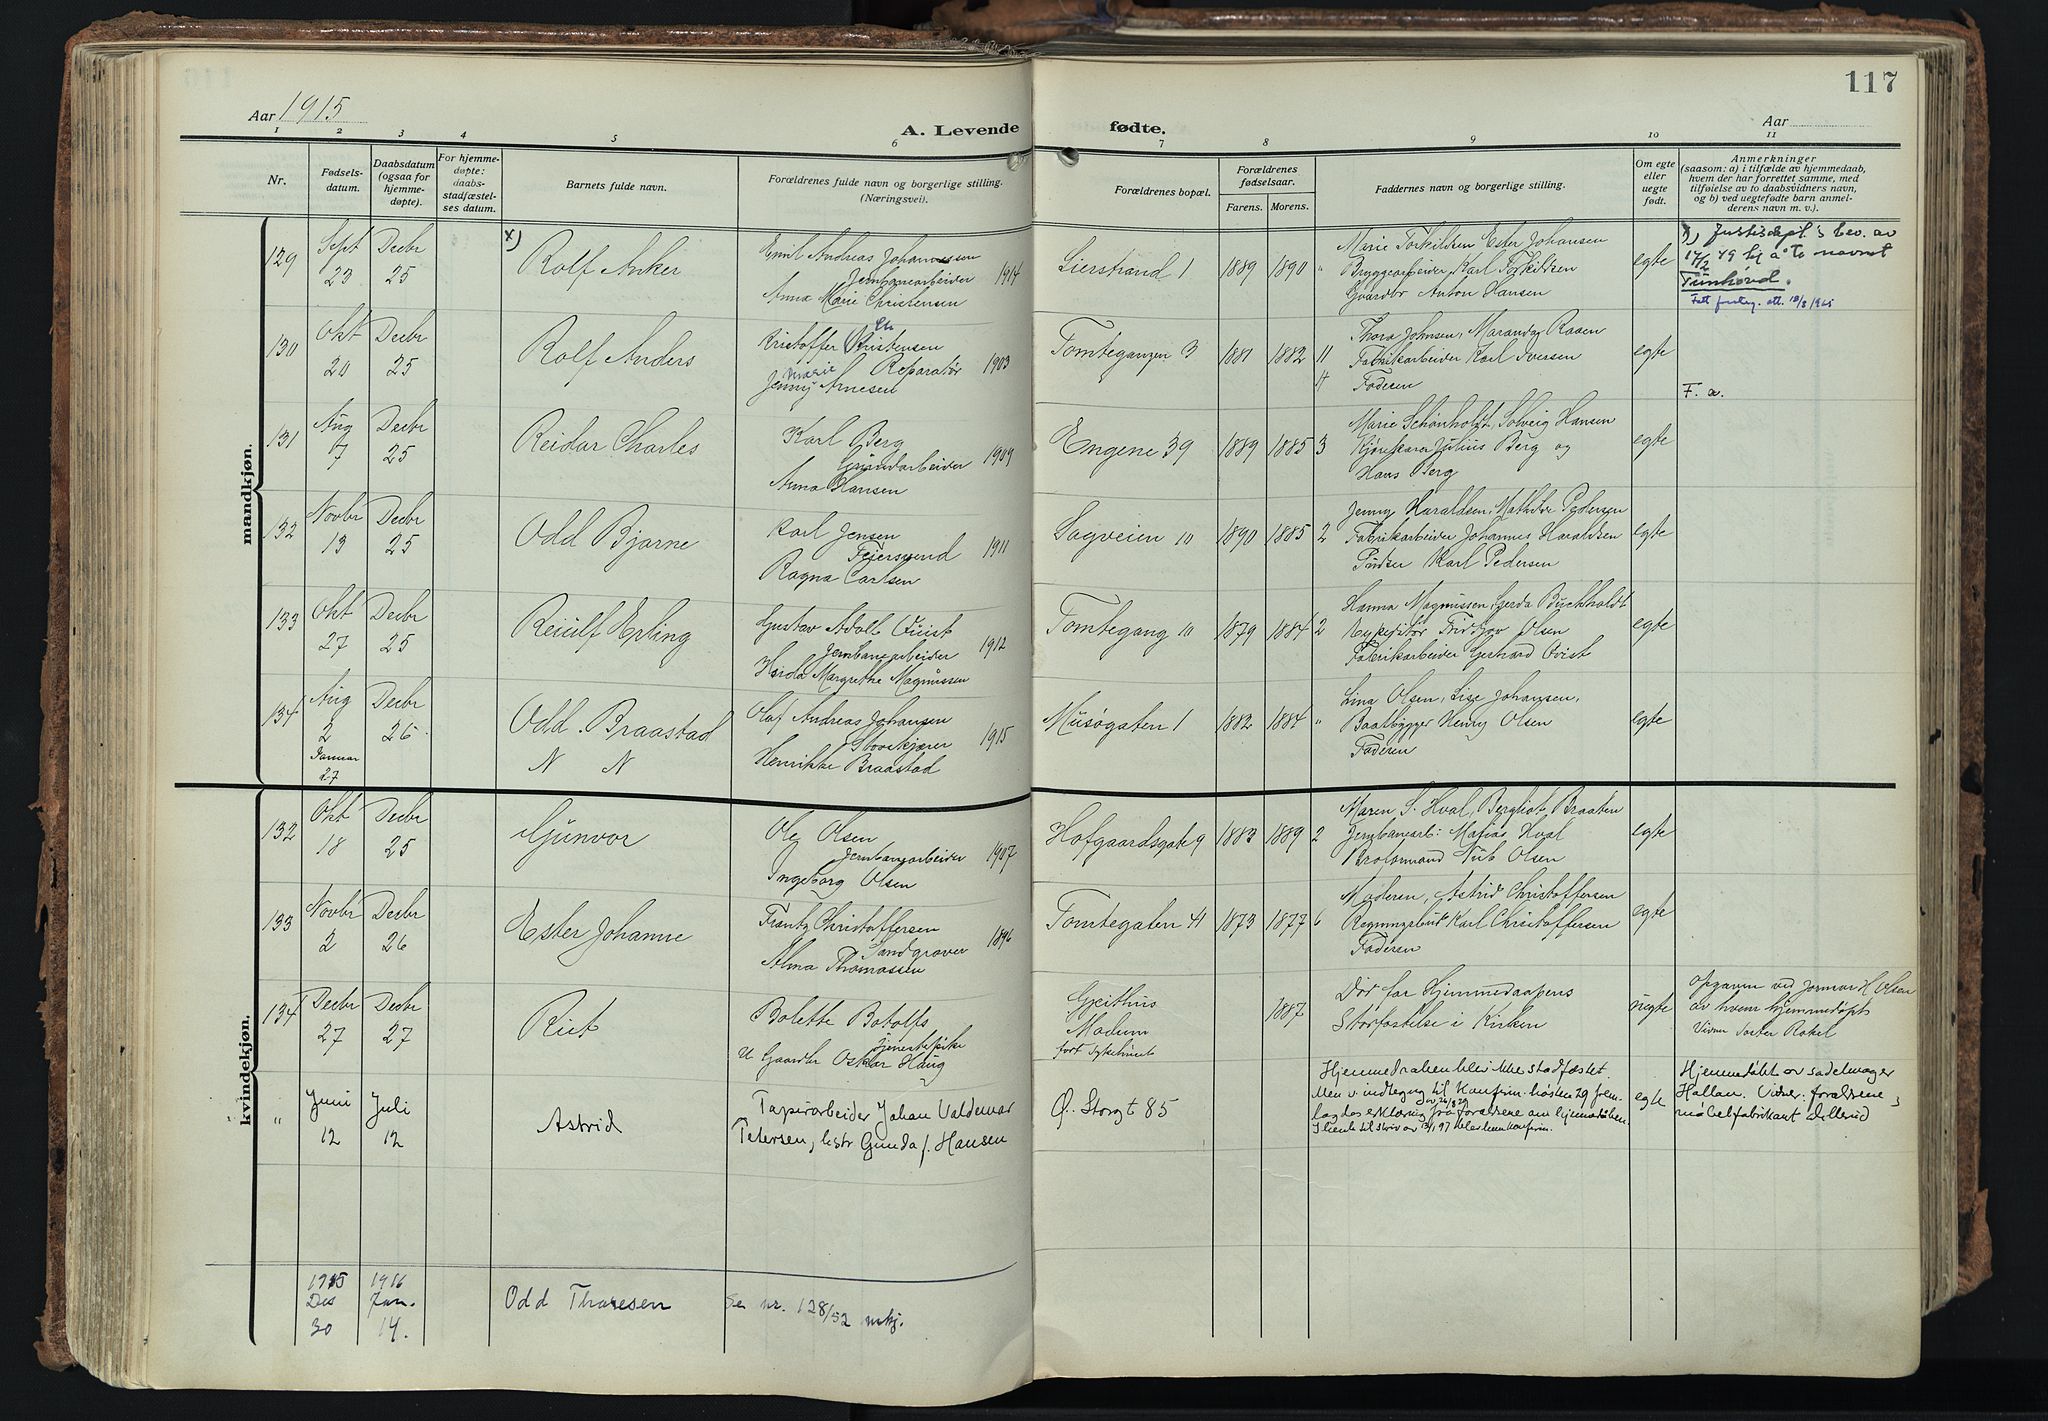 117
Aar 1915
A. Levende fødte.
Aar
1 2 3 4 5 6 7 8 9 10 11
Nr.
Fødsels-
datum.
Daabsdatum
(ogsaa for
hjemme-
døpte).
For hjemme-
døpte:
daabs-
stadfæstel-
ses datum.
Barnets fulde navn.
Forældrenes fulde navn og borgerlige stilling.
(Næringsvei).
Forældrenes bopæl.
Forældrenes
fødselsaar.
Farens. Morens.
Faddernes navn og borgerlige stilling.
Om egte
eller
uegte
født.
Anmerkninger
(saasom: a) i tilfælde av hjemmedaab,
hvem der har forrettet samme, med
tilføielse av to daabsvidners navn,
og b) ved uegtefødte barn anmel-
derens navn m. v.).
mandkjøn.
129
Sept
23
Decbr
25
x)
Rolf Anker
Emil Andreas Johannessen
Jernbanearbeider
Anna Marie Christensen
1914
Lierstrand 1
1889 1890 "
Marie Torkildsen Ester Johansen
Bryggearbeider Karl Torkildsen
Gaardbr Anton Hansen
egte
x) Justisdept's bev. av
17/2 49 til å ta navnet
130
Okt
20
Decbr
25
Rolf Anders
Kristoffer Christensen
Reparatør
Jenny Marie Arnesen
1903
Tomtegangen 3
1881 1882 11
4
Thora Johnsen, Maranda Raaen
Fabrikarbeider Karl Iversen
Faderen
egte
F. a.
131
Aug
7
Decbr
25
Reidar Charles
Karl Berg
Grundarbeider
Anna Hansen
1909
Engene 39
1889 1885 3
Marie Schønholdt, Solveig Hansen
Kjørekarer Julius Berg og
Hans Berg
egte
132
Novbr
13
Decbr
25
Odd Bjarne
Karl Jensen
Feiersvend
Ragna Carlsen
1911
Sagveien 10
1890 1885 2
Jenny Haraldsen, Mathilde Pedersen
Fabrikarbeider Johannes Haraldsen
Pudser Karl Pedersen
egte
133
Okt
27
Decbr
25
Reiulf Erling
Gustav Adolf Quist
Jernbanearbeider
Herda Margrethe Magnussen
1912
Tomtegang 10
1879 1884 2
Hanna Magnussen, Gerda Buckholdt
Expeditør Fridtjov Olsen
Fabrikarbeider Gerhard Qvist
egte
134
Aug
2
Januar
27
Decbr
26
Odd Braastad
N N
Olaf Andreas Johansen
Henrikke Braastad
1915
Musøgaten 1
1882 1884 "
Lina Olsen, Lise Johansen,
Baatbygger Henry Olsen
Faderen
egte
kvindekjøn.
132
Okt
18
Decbr
25
Gunvor
Ole Olsen
Jernbanearbeider
Ingeborg Olsen
1907
Hofgaardsgate 9
1883 1889 2
Maren S. Hval, Bergliot Braaten
Jernbanearb: Matias Hval
Olsen
egte
133
Novbr
2
Decbr
26
Ester Johanne
Frantz Christoffersen
Sandgraver
Alma Thomassen
1896
Tomtegaten 41
1873 1877 6
Moderen, Astrid Christoffersen
Regningsbud Karl Christoffersen
Faderen
egte
134
Decbr
27
Decbr
27
Rut
Bolette Botolfs
tjenestepike
U. Gaardbr Oskar Haug
Geithus
Modum
fort. Sykehuset
1887
Død før Hjemmedaapens
Stadfæstelse i Kirken
uegte
Opgaven ved Jormor H Olsen
av hvem hjemmedøpt
"
Juni
12
Juli
12
Astrid
Papirarbeider Johan Valdemar
Petersen, hstr Gunda f. Hansen
Ø. Storgt 85
Hjemmedaaben blev ikke stadfæstet.
Men v. indtegng til konfirm. høsten 29 frem-
lagdes erklæring fra forældrene om hjemmedåben.
egte
Hjemmedøbt av sadelmager
Hallan. Vidner: forældrene,
møbelfabrikant Lillerud
1915
Des
30
1916
Jan.
14.
Odd Thoresen
Se nr. 128/52 mkj.